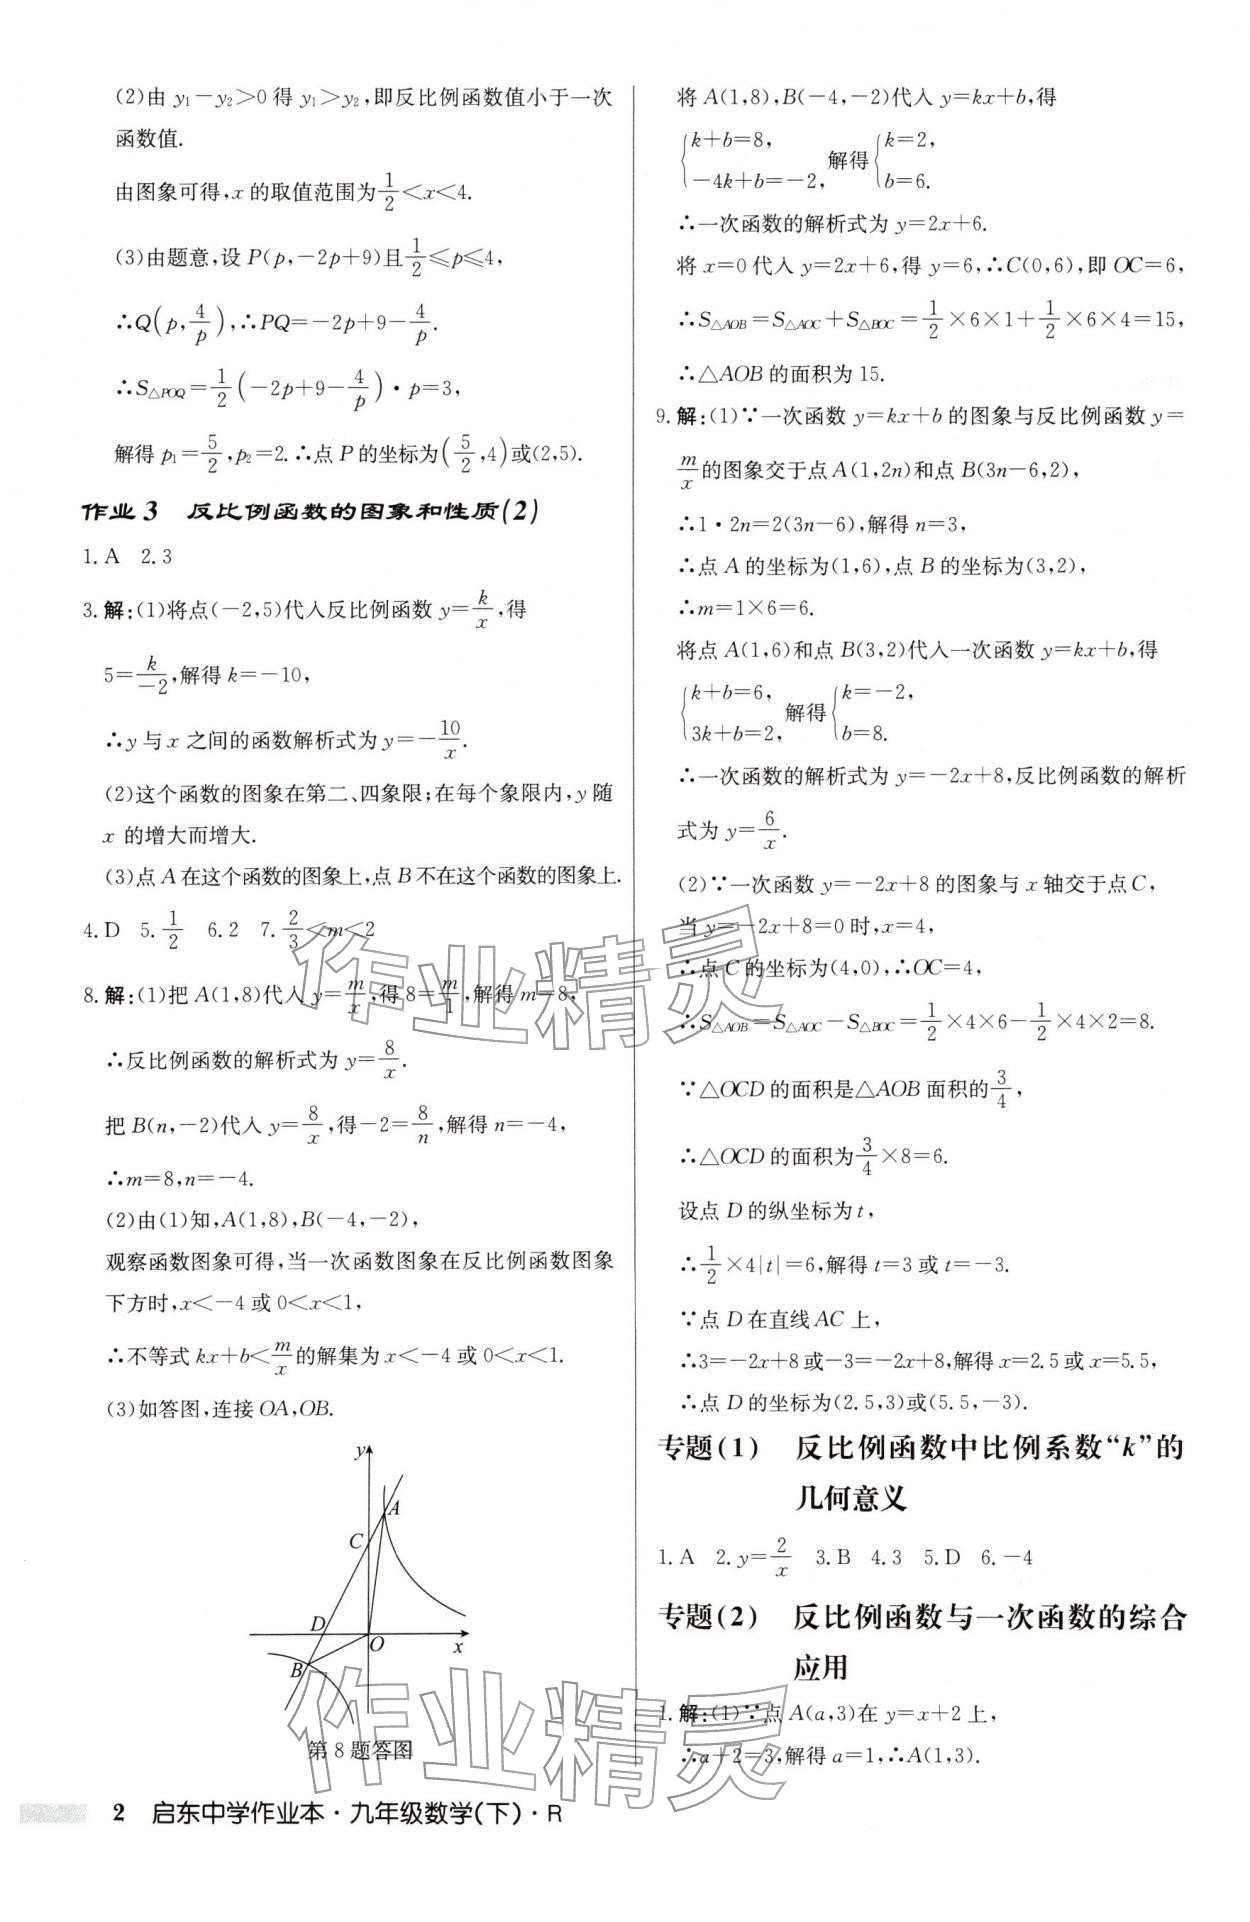 (2)由 y₁－y₂＞0 得 y₁＞y₂,即反比例函数值小于一次
函数值.
由图象可得,x 的取值范围为1/2＜x＜4.
(3)由题意,设 P(p,－2p＋9)且1/2≤p≤4,
∴Q(p,4/p),∴PQ＝－2p＋9－4/p.
∴S△POQ＝1/2(－2p＋9－4/p)·p＝3,
解得 p₁＝5/2,p₂＝2.∴点 P 的坐标为(5/2,4)或(2,5).
作业 3 反比例函数的图象和性质(2)
1.A 2.3
3.解:(1)将点(－2,5)代入反比例函数 y＝k/x,得
5＝k/－2,解得 k＝－10,
∴y 与 x 之间的函数解析式为 y＝－10/x.
(2)这个函数的图象在第二、四象限;在每个象限内,y 随
x 的增大而增大.
(3)点 A 在这个函数的图象上,点 B 不在这个函数的图象上.
4.D 5.1/2 6.2 7.2/3＜m＜2
8.解:(1)把 A(1,8)代入 y＝m/x,得 8＝m/1,解得 m＝8,
∴反比例函数的解析式为 y＝8/x.
把 B(n,－2)代入 y＝8/x,得－2＝8/n,解得 n＝－4,
∴m＝8,n＝－4.
(2)由(1)知,A(1,8),B(－4,－2),
观察函数图象可得,当一次函数图象在反比例函数图象
下方时,x＜－4 或 0＜x＜1,
∴不等式 kx＋b＜m/x的解集为 x＜－4 或 0＜x＜1.
(3)如答图,连接 OA,OB.
y
A
C
D
O
x
B
第 8 题答图
将 A(1,8),B(－4,－2)代入 y＝kx＋b,得
{k＋b＝8, －4k＋b＝－2, 解得{k＝2, b＝6.
∴一次函数的解析式为 y＝2x＋6.
将 x＝0 代入 y＝2x＋6,得 y＝6,∴C(0,6),即 OC＝6,
∴S△AOB＝S△AOC＋S△BOC＝1/2×6×1＋1/2×6×4＝15,
∴△AOB 的面积为 15.
9.解:(1)∵一次函数 y＝kx＋b 的图象与反比例函数 y＝
m/x的图象交于点 A(1,2n)和点 B(3n－6,2),
∴1·2n＝2(3n－6),解得 n＝3,
∴点 A 的坐标为(1,6),点 B 的坐标为(3,2),
∴m＝1×6＝6.
将点 A(1,6)和点 B(3,2)代入一次函数 y＝kx＋b,得
{k＋b＝6, 3k＋b＝2, 解得{k＝－2, b＝8.
∴一次函数的解析式为 y＝－2x＋8,反比例函数的解析
式为 y＝6/x.
(2)∵一次函数 y＝－2x＋8 的图象与 x 轴交于点 C,
当 y＝－2x＋8＝0 时,x＝4,
∴点 C 的坐标为(4,0),∴OC＝4,
∴S△AOB＝S△AOC－S△BOC＝1/2×4×6－1/2×4×2＝8.
∵△OCD 的面积是△AOB 面积的3/4,
∴△OCD 的面积为3/4×8＝6.
设点 D 的纵坐标为 t,
∴1/2×4|t|＝6,解得 t＝3 或 t＝－3.
∵点 D 在直线 AC 上,
∴3＝－2x＋8 或－3＝－2x＋8,解得 x＝2.5 或 x＝5.5,
∴点 D 的坐标为(2.5,3)或(5.5,－3).
专题(1) 反比例函数中比例系数“k”的
几何意义
1.A 2.y＝2/x 3.B 4.3 5.D 6.－4
专题(2) 反比例函数与一次函数的综合
应用
1.解:(1)∵点 A(a,3)在 y＝x＋2 上,
∴a＋2＝3,解得 a＝1,∴A(1,3).
2 启东中学作业本·九年级数学(下)·R
作业精灵
作业精灵